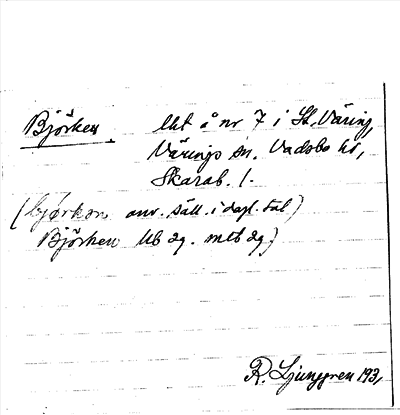 Björken lht å nr 7 i St. Väring,
Värings sn. Vadsbo hd,
Skarab. l.
(björkon anv. säll. i dagl. tal)
Björken Ub dg. mtb dg)
R. Ljunggren 193,